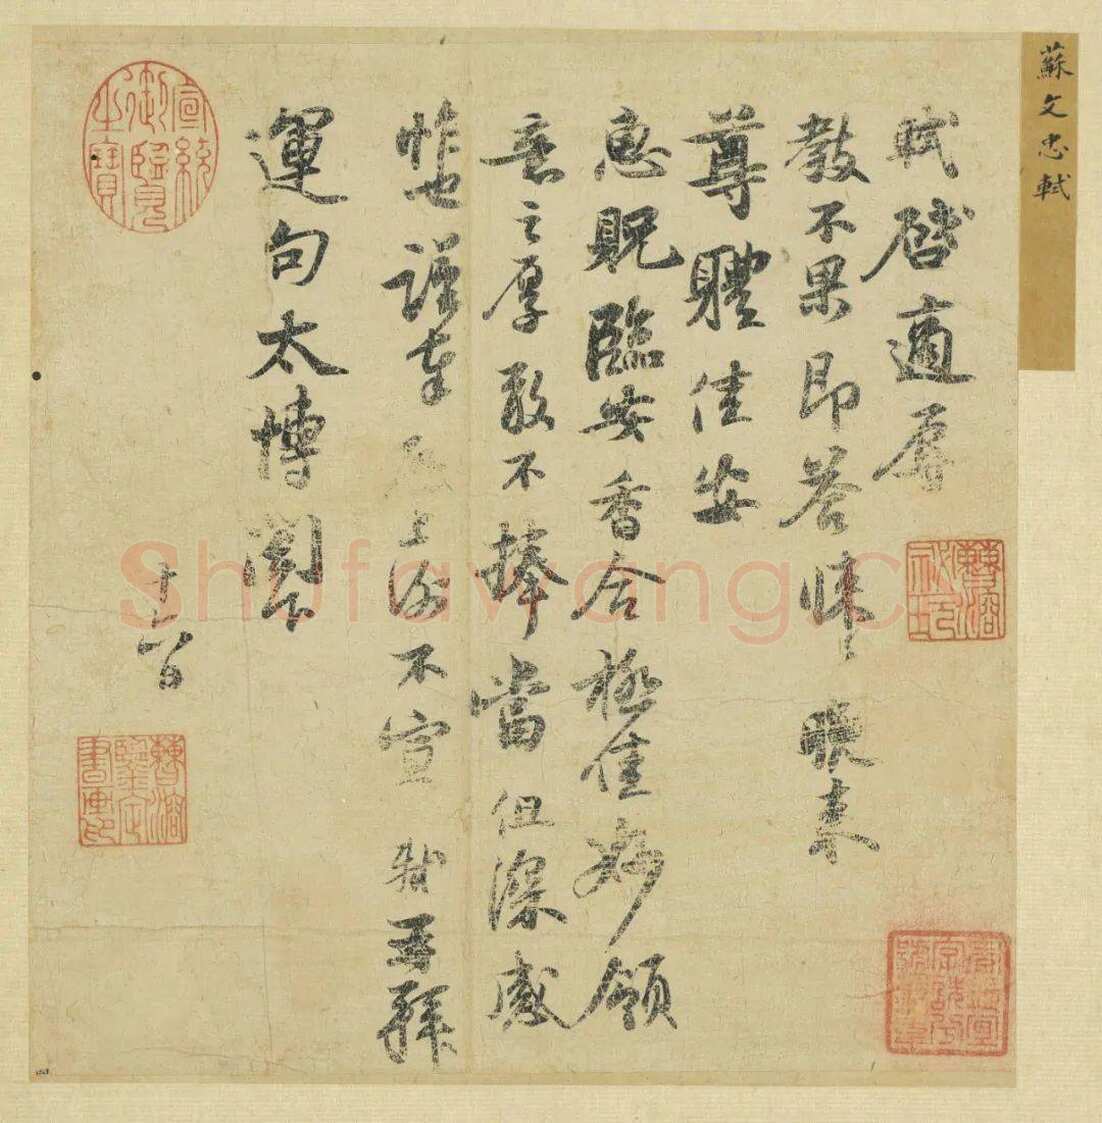 蘇文忠軾
軾啓適辱
教不果即答悚悚晚來
尊體佳安
惠貺臨安香合極佳妙領
意之厚敢不捧當但深感
怍也謹奉 上謝不宣 軾再拜
運句太博閣下
十六日
宣統御覽之寶
shufawang.c